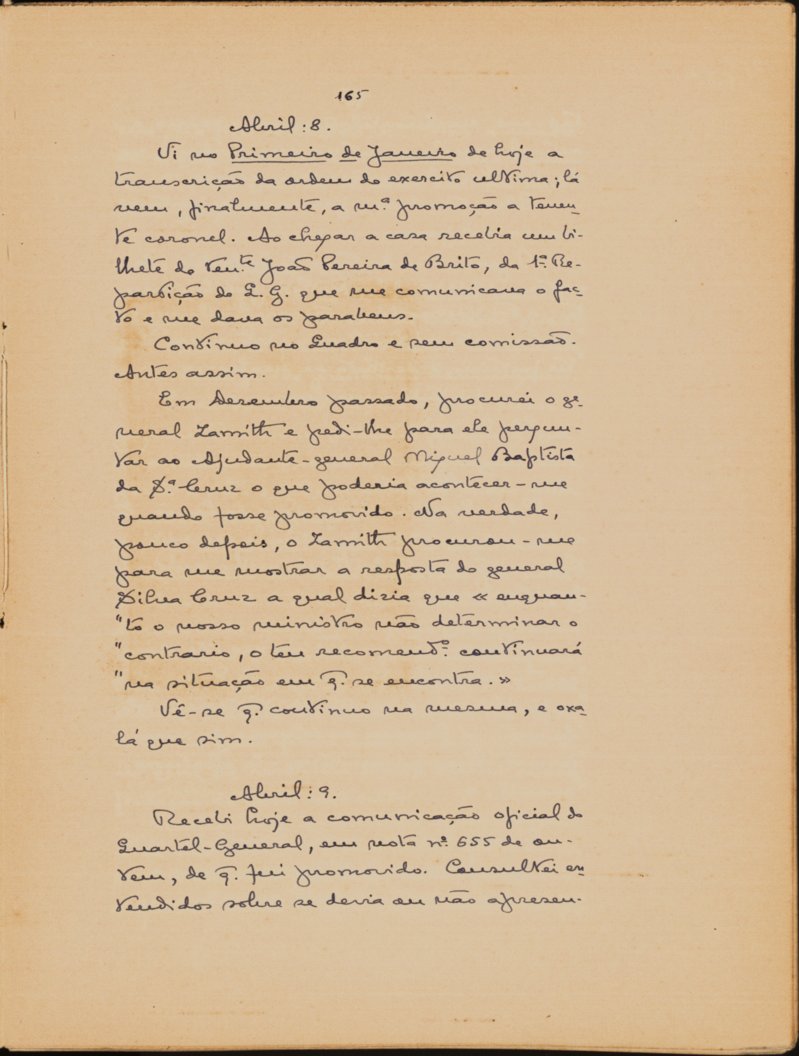 165
Abril: 8.
Vi no Primeiro de Janeiro de hoje a
transcrição da ordem do exercito ultima; lá
vem, finalmente, a m.ª promoção a tenen-
te coronel. Ao chegar a casa recebia um bi-
lhete do ten.te João Pereira de Brito, da 1.ª Re-
partição do Q. G. que me comunicava o fac-
to e me dava os parabens.
Continuo no Quadro e sem comissão.
Antes assim.
Em Dezembro passado, procurei o ge-
neral Lamith e pedi-lhe para ele pergun-
tar ao Ajudante-general Miguel Baptista
da S.ª Cruz o que poderia acontecer-me
quando fosse promovido. Na verdade,
pouco depois, o Lamith procurou-me
para me mostrar a resposta do general
Silva Cruz a qual dizia que « enquan-
"to o nosso ministro não determinar o
"contrario, o teu recomend.º continuará
"na situação em q. se encontra. »
Vê-se q. continuo na mesma, e oxa-
lá que sim.
Abril: 9.
Recebi hoje a comunicação oficial do
Quartel-General, em nota nº. 655 de on-
tem, de q. fui promovido. Consultei en-
tendidos sobre se devia ou não apresen-